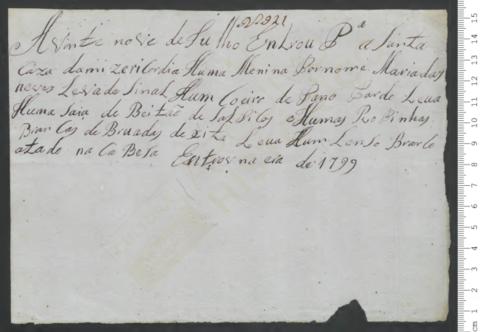 22921
A vinte nove de Julho Entrou Pª a Santa
Caza da mizericordia Huma Menina Por nome Maria das
neves Leva de Sinal Hum Coeiro de Pano Pardo Leua
Huma Saia de Beitão de Salpicos e Humas Roupinhas
Brancas de de xita Leua Hum Lenso Branco
atado na CaBesa Entrou na era de 1799